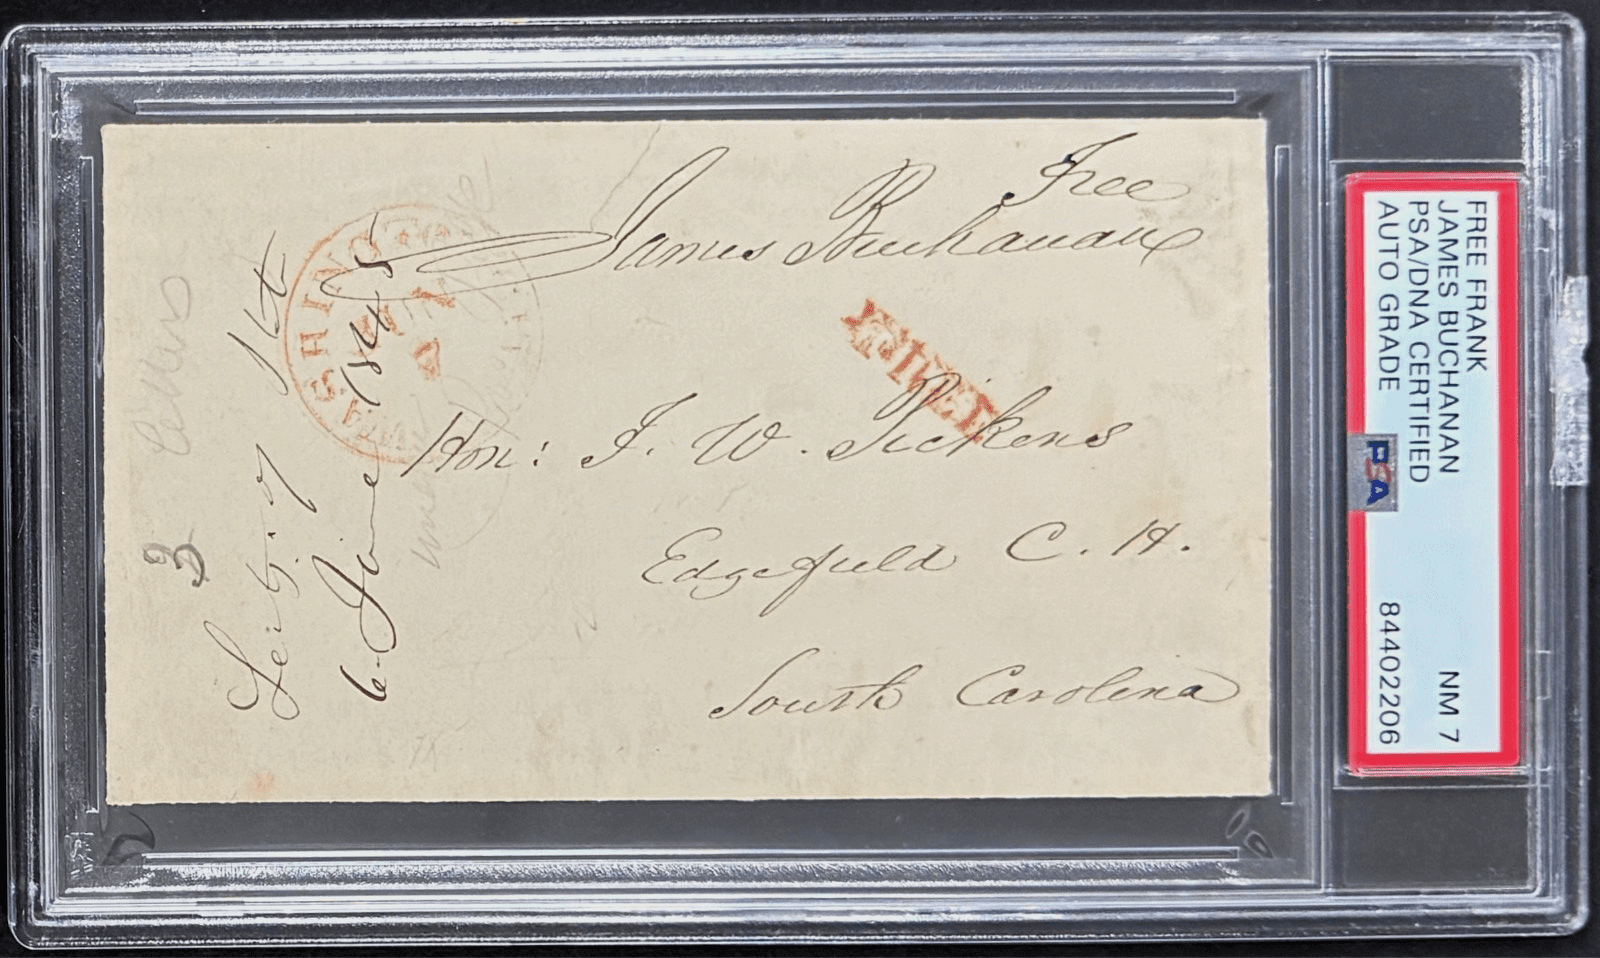 Free
James Buchanan
FREE
Hon: F. W. Pickens
Edgefield C. H.
South Carolina
6 June 1845
WASHINGTON
3
FREE FRANK
JAMES BUCHANAN
PSA/DNA CERTIFIED
AUTO GRADE
NM 7
84402206
PSA